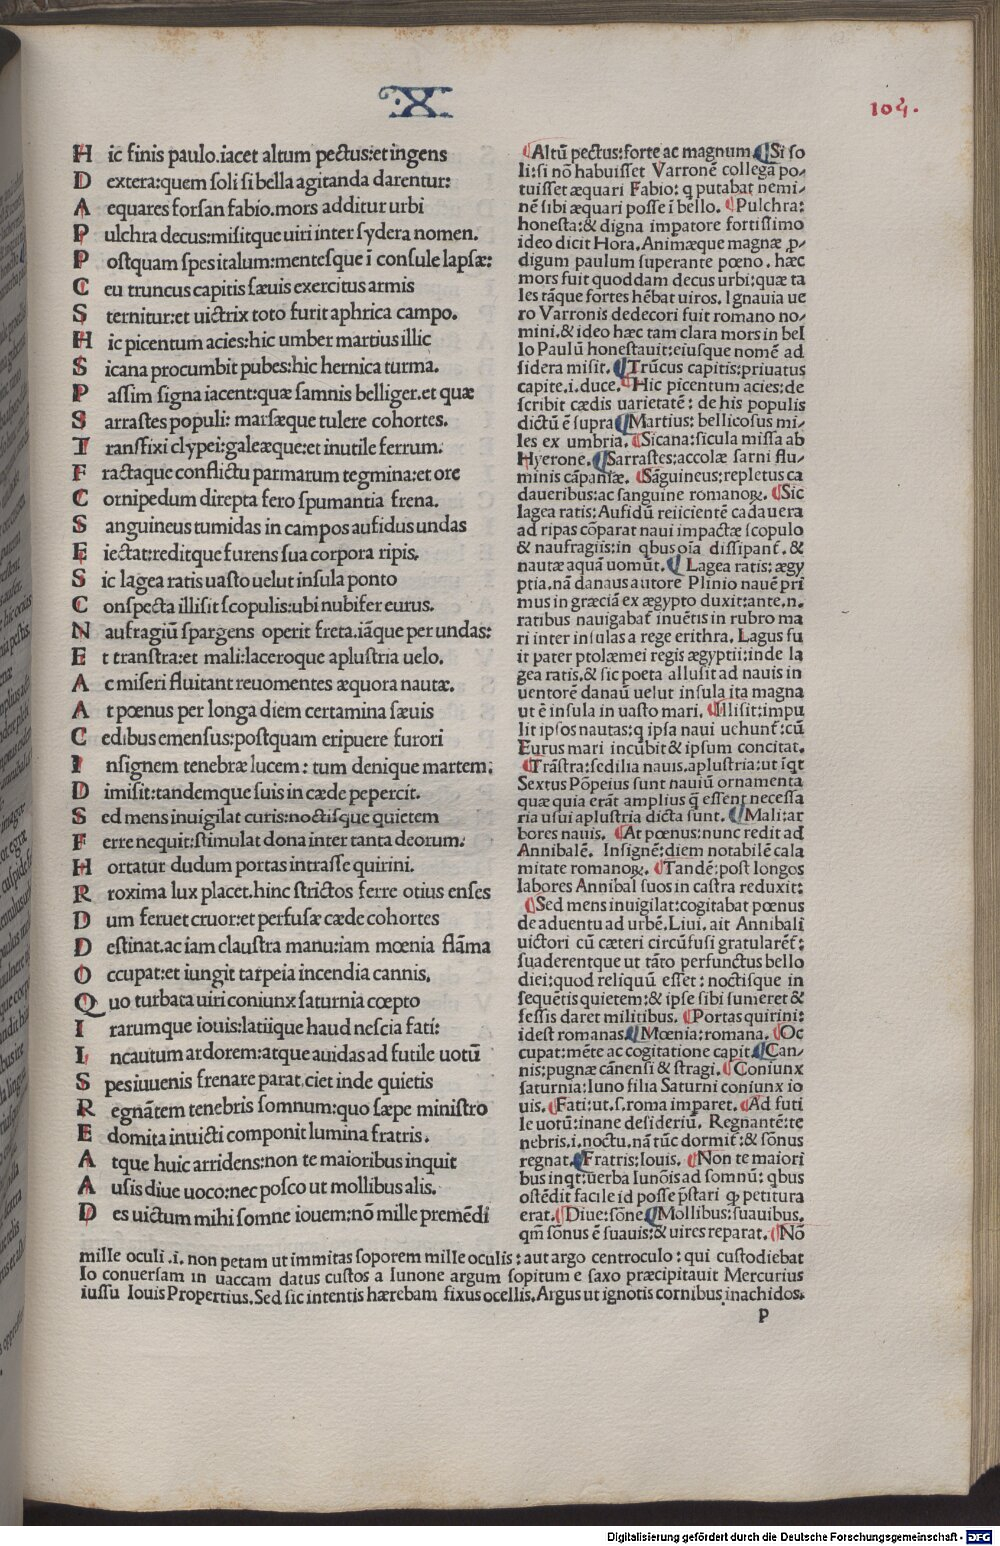 .X.
104.
H ic finis paulo.iacet altum pectus:et ingens
D extera:quem soli si bella agitanda darentur:
A equares forsan fabio.mors additur urbi
P ulchra decus:misitque uiri inter sydera nomen.
P ostquam spes italum:mentesque ī consule lapsæ:
C eu truncus capitis sæuis exercitus armis
S ternitur:et uictrix toto furit aphrica campo.
H ic picentum acies:hic umber martius illic
S icana procumbit pubes:hic hernica turma.
P assim signa iacent:quæ samnis belliger.et quæ
S arrastes populi: marsæque tulere cohortes.
T ransfixi clypei:galeæque:et inutile ferrum.
F ractaque conflictu parmarum tegmina:et ore
C ornipedum direpta fero spumantia frena.
S anguineus tumidas in campos aufidus undas
E iectat:reditque furens sua corpora ripis.
S ic lagea ratis uasto uelut insula ponto
C onspecta illisit scopulis:ubi nubifer eurus.
N aufragiū spargens operit freta.iāque per undas:
E t transtra:et mali:laceroque aplustria uelo.
A c miseri fluitant reuomentes æquora nautæ.
A t pœnus per longa diem certamina sæuis
C edibus emensus:postquam eripuere furori
I nsignem tenebræ lucem: tum denique martem:
D imisit:tandemque suis in cæde pepercit.
S ed mens inuigilat curis:noctisque quietem
F erre nequit:stimulat dona inter tanta deorum:
H ortatur dudum portas intrasse quirini.
R roxima lux placet.hinc strictos ferre otius enses
D um feruet cruor:et perfusæ cæde cohortes
D estinat.ac iam claustra manu:iam mœnia flāma
O ccupat:et iungit tarpeia incendia cannis.
Q uo turbata uiri coniunx saturnia cœpto
I rarumque iouis:latiique haud nescia fati:
I ncautum ardorem:atque auidas ad futile uotū
S pes iuuenis frenare parat.ciet inde quietis
R egnātem tenebris somnum:quo sæpe ministro
E domita inuicti componit lumina fratris.
A tque huic arridens:non te maioribus inquit
A usis diue uoco:nec posco ut mollibus alis.
D es uictum mihi somne iouem:nō mille premēdi
Altū pectus:forte ac magnum. Si so
li:si nō habuisset Varronē collegā po/
tuisset æquari Fabio: q putabat nemi/
nē sibi æquari posse ī bello. Pulchra:
honesta:& digna impatore fortissimo
ideo dicit Hora.Animæque magnæ ꝓ/
digum paulum superante pœno. hæc
mors fuit quoddam decus urbi:quæ ta
les tāque fortes hēbat uiros. Ignauia ue
ro Varronis dedecori fuit romano no/
mini.& ideo hæc tam clara mors in bel
lo Paulū honestauit:eiusque nomē ad
sidera misit. Trūcus capitis:priuatus
capite.i.duce. Hic picentum acies:de
scribit cædis uarietatē: de his populis
dictū ē supra Martius: bellicosus mi/
les ex umbria. Sicana:sicula missa ab
Hyerone. Sarrastes:accolæ sarni flu/
minis cāpaniæ. Sāguineus:repletus ca
daueribus:ac sanguine romanoꝝ. Sic
lagea ratis:Aufidū reiicientē cadauera
ad ripas cōparat naui impactæ scopulo
& naufragiis:in qbus oīa dissipanť. &
nautæ aquā uomūt. Lagea ratis: ægy
ptia.nā danaus autore Plinio nauē pri
mus in græciā ex ægypto duxit:ante.n.
ratibus nauigabať inuētis in rubro ma
ri inter insulas a rege erithra. Lagus fu
it pater ptolæmei regis ægyptii:inde la
gea ratis.& sic poeta allusit ad nauis in
uentorē danaū uelut insula ita magna
ut ē insula in uasto mari. Illisit:impu
lit ipsos nautas:q ipsa naui uehunť:cū
Eurus mari incūbit & ipsum concitat.
Trāstra:sedilia nauis.aplustria:ut īqt
Sextus Pōpeius sunt nauiū ornamenta
quæ quia erāt amplius q̄ essent necessa
ria usui aplustria dicta sunt. Mali:ar
bores nauis. At pœnus:nunc redit ad
Annibalē. Insignē:diem notabilē cala
mitate romanoꝝ. Tandē:post longos
labores Annibal suos in castra reduxit:
Sed mens inuigilat:cogitabat pœnus
de aduentu ad urbē.Liui. ait Annibali
uictori cū cæteri circūfusi gratularēť:
suaderentque ut tāto perfunctus bello
diei:quod reliquū esset: noctisque in
sequētis quietem:& ipse sibi sumeret &
fessis daret militibus. Portas quirini:
idest romanas. Mœnia:romana. Oc
cupat:mēte ac cogitatione capit. Can/
nis:pugnæ cānensi & stragi. Coniunx
saturnia:Iuno filia Saturni coniunx io
uis. Fati:ut.s.roma imparet. Ad futi
le uotū:inane desideriū. Regnantē:te
nebris.i.noctu.nā tūc dormiť:& sōnus
regnat. Fratris:Iouis. Non te maiori
bus inqt:uerba Iunōis ad somnū: qbus
ostēdit facile id posse p̄stari qꝫ petitura
erat. Diue:sōne. Mollibus:suauibus.
qm̄ sōnus ē suauis:& uires reparat. Nō
mille oculi .i. non petam ut immitas soporem mille oculis: aut argo centroculo: qui custodiebat
Io conuersam in uaccam datus custos a Iunone argum sopitum e saxo præcipitauit Mercurius
iussu Iouis Propertius.Sed sic intentis hærebam fixus ocellis.Argus ut ignotis cornibus inachidos.
P
Digitalisierung gefördert durch die Deutsche Forschungsgemeinschaft - DFG